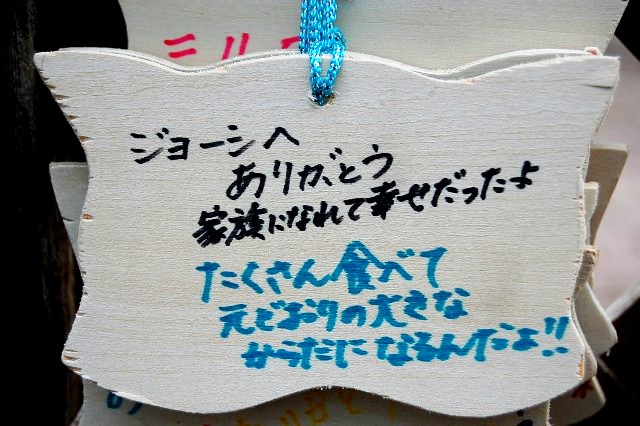 ニルマ
ジョーシへ
ありがとう
家族になれて幸せだったよ
たくさん食べて
元どおりの大きな
からだになるんだよ!!